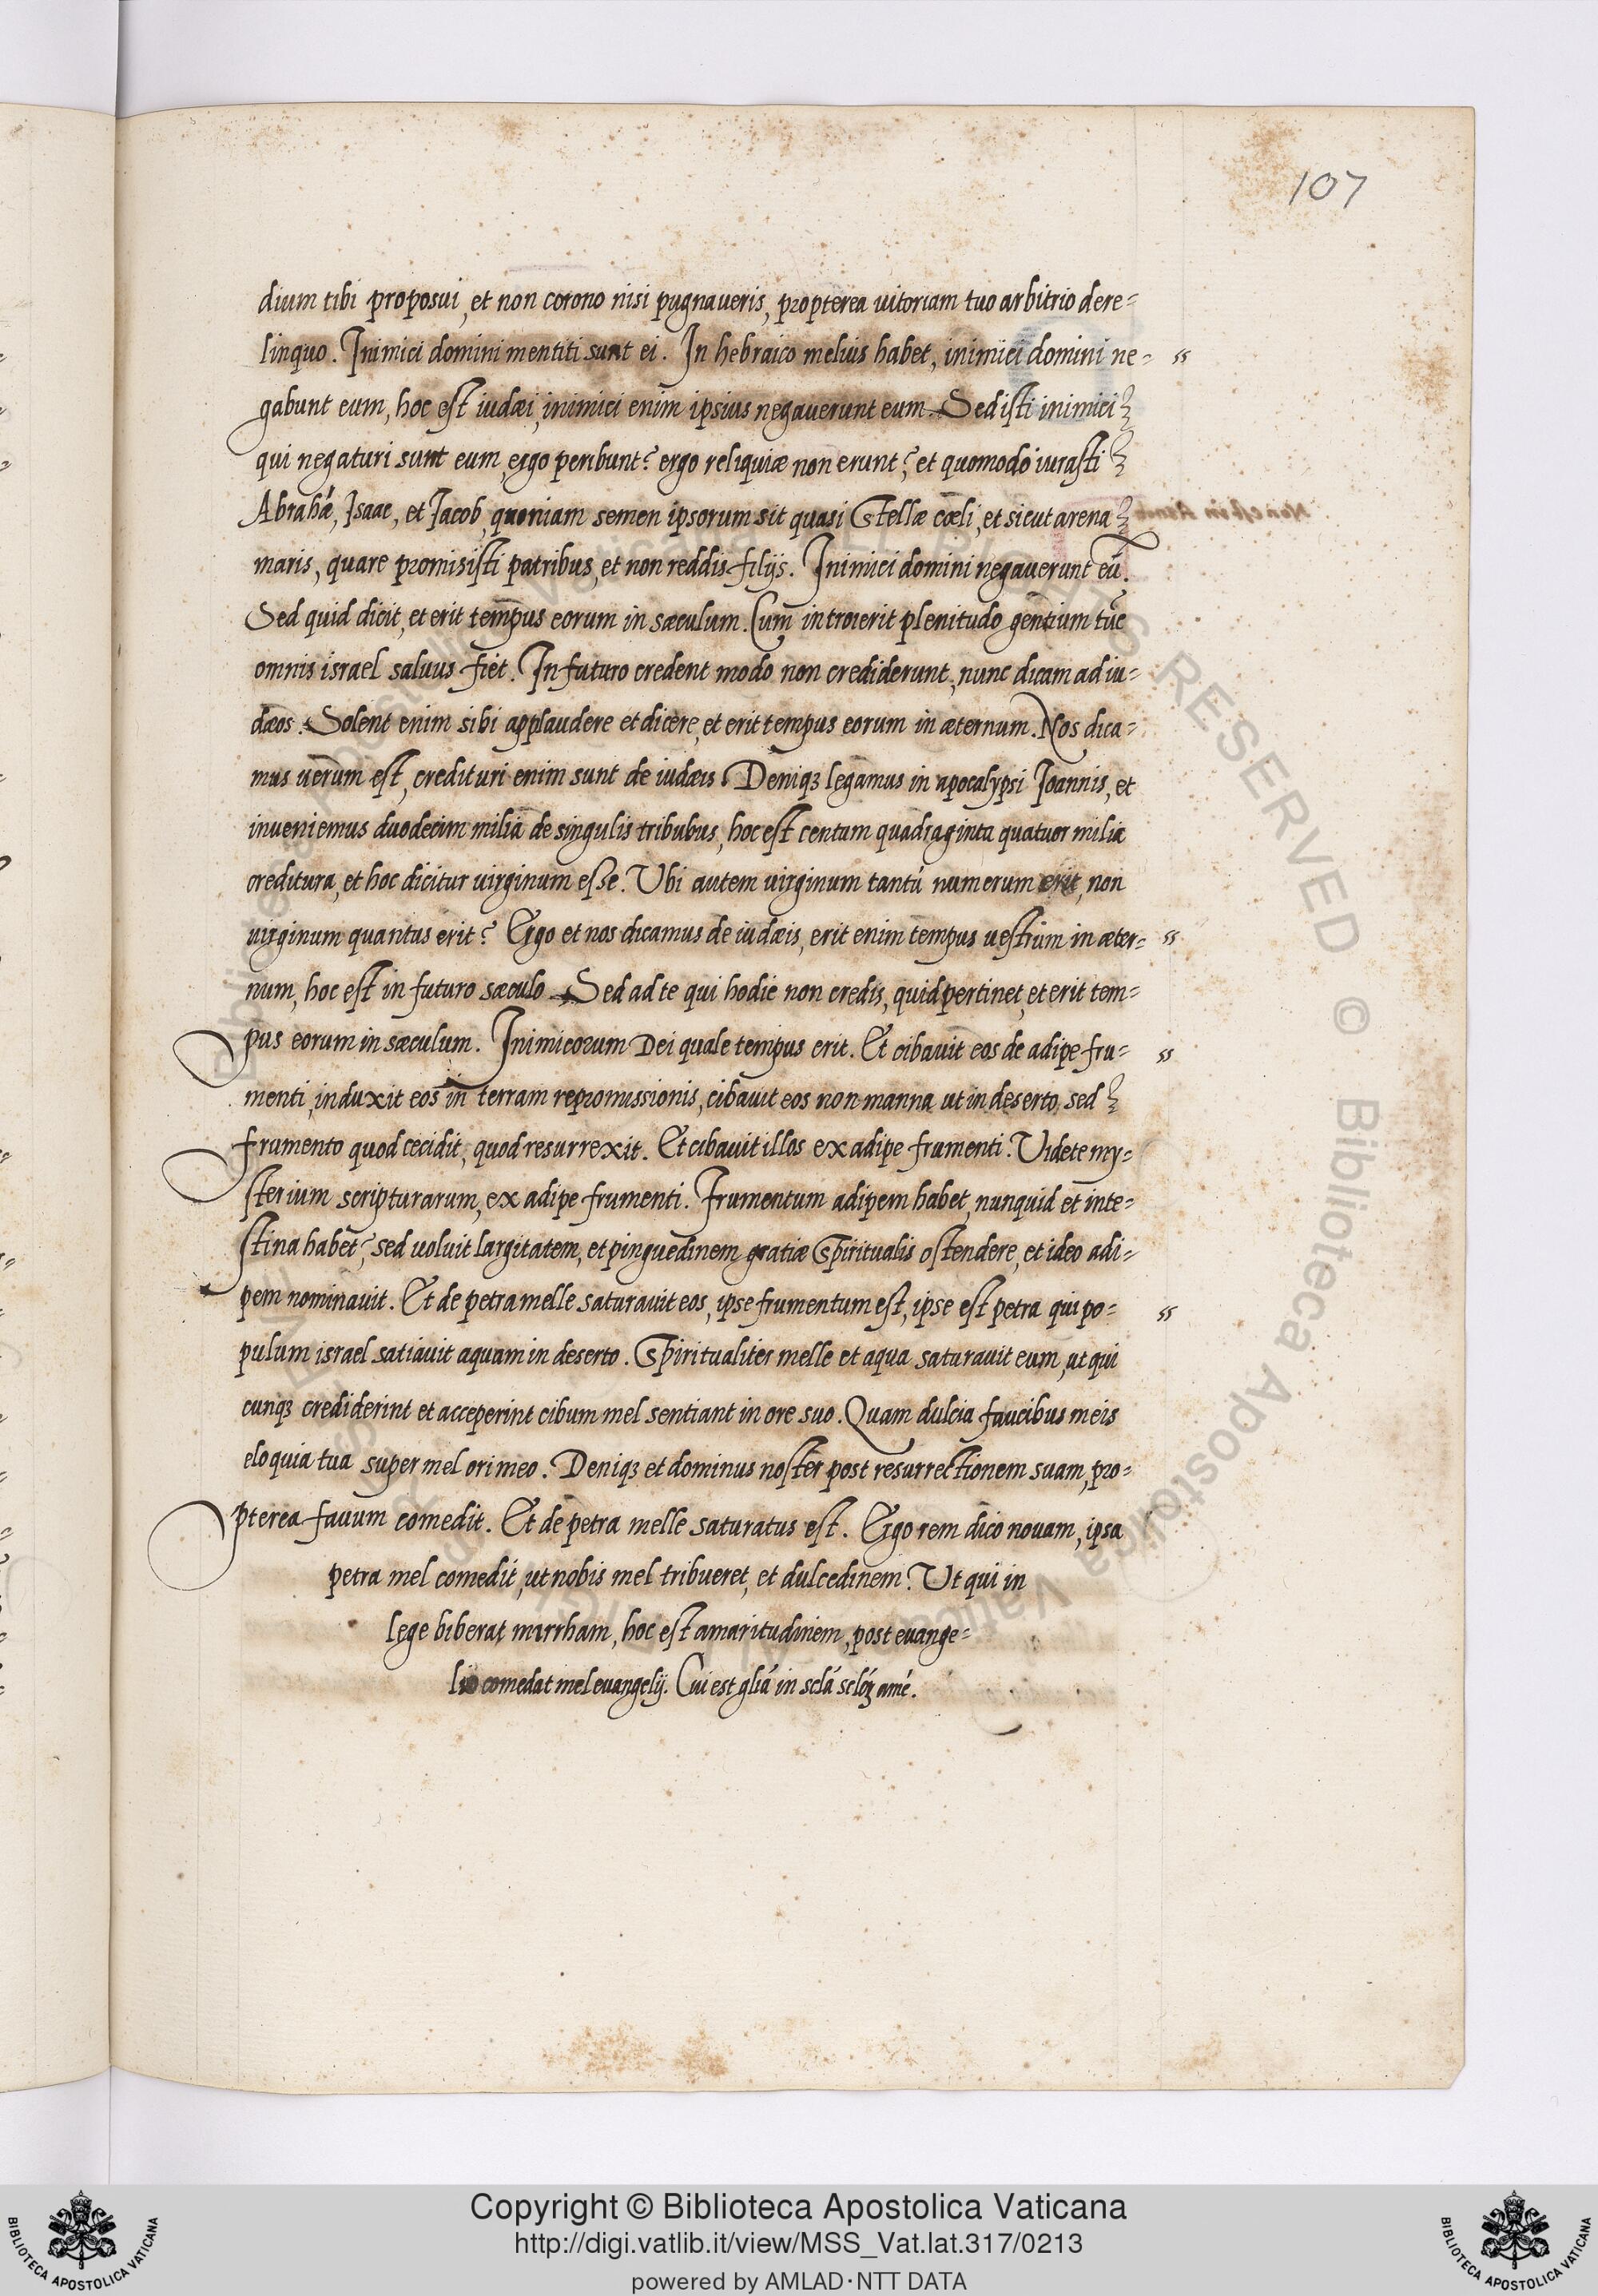 107
dium tibi proposui, et non corono nisi pugnaueris, propterea uitoriam tuo arbitrio dere=
linquo. Inimici domini mentiti sunt ei. In hebraico meluis habet, inimici domini ne= ss
gabunt eum, hoc est iudæi, inimici enim ipsius negauerunt eum. Sed isti inimici
qui negaturi sunt eum, ergo peribunt? ergo reliquiæ non erunt? et quomodo iurasti
Abrahá, Isaac, et Jacob, quoniam semen ipsorum sit quasi Stellæ cæli, et sicut arena
maris, quare promisisti patribus, et non reddis filijs. Inimici domini negauerunt eú.
Sed quid dicit, et erit tempus eorum in sæculum. Cum introierit plenitudo gentium túc
omnis israel saluus fiet. In futuro credent modo non crediderunt, nunc dicam ad iu=
dæos. Solent enim sibi applaudere et dicere, et erit tempus eorum in æternum. Nos dica=
mus uerum est, credituri enim sunt de iudæis. Deniqȝ legamus in apocalypsi Joannis, et
inueniemus duodecim milia de singulis tribubus, hoc est centum quadraginta quatuor milia
creditura, et hoc dicitur uirginum esse. Ubi autem uirginum tantú numerum erit, non
uirginum quantus erit? Ergo et nos dicamus de iudæis, erit enim tempus uestrum in æter= ss
num, hoc est in futuro sæculo. Sed ad te qui hodie non credis, quid pertinet, et erit tem=
pus eorum in sæculum. Inimicorum Dei quale tempus erit. Et cibauit eos de adipe fru= ss
menti, induxit eos in terram repromissionis, cibauit eos non manna ut in deserto, sed
frumento quod cecidit, quod resurrexit. Et cibauit illos ex adipe frumenti. Videte my=
sterium scripturarum, ex adipe frumenti. Frumentum adipem habet, nunquid et inte=
stina habet? sed uoluit largitatem, et pinguedinem gratiæ Spiritualis ostendere, et ideo adi=
pem nominauit. Et de petra melle saturauit eos, ipse frumentum est, ipse est petra qui po= ss
pulum israel satiauit aquam in deserto. Spiritualiter melle et aqua saturauit eum, ut qui
cunqȝ crediderint et acceperint cibum mel sentiant in ore suo. Quam dulcia faucibus meis
eloquia tua super mel ori meo. Deniqȝ et dominus noster post resurrectionem suam, pro=
pterea fauum comedit. Et de petra melle saturatus est. Ergo rem dico nouam, ipsa
petra mel comedit, ut nobis mel tribueret, et dulcedinem. Ut qui in
lege biberat mirrham, hoc est amaritudinem, post euange=
lio comedat mel euangelij. Cui est gliá in sclá scloȝ amé.
Copyright © Biblioteca Apostolica Vaticana
http://digi.vatlib.it/view/MSS_Vat.lat.317/0213
powered by AMLAD·NTT DATA
BIBLIOTECA APOSTOLICA VATICANA
BIBLIOTECA APOSTOLICA VATICANA